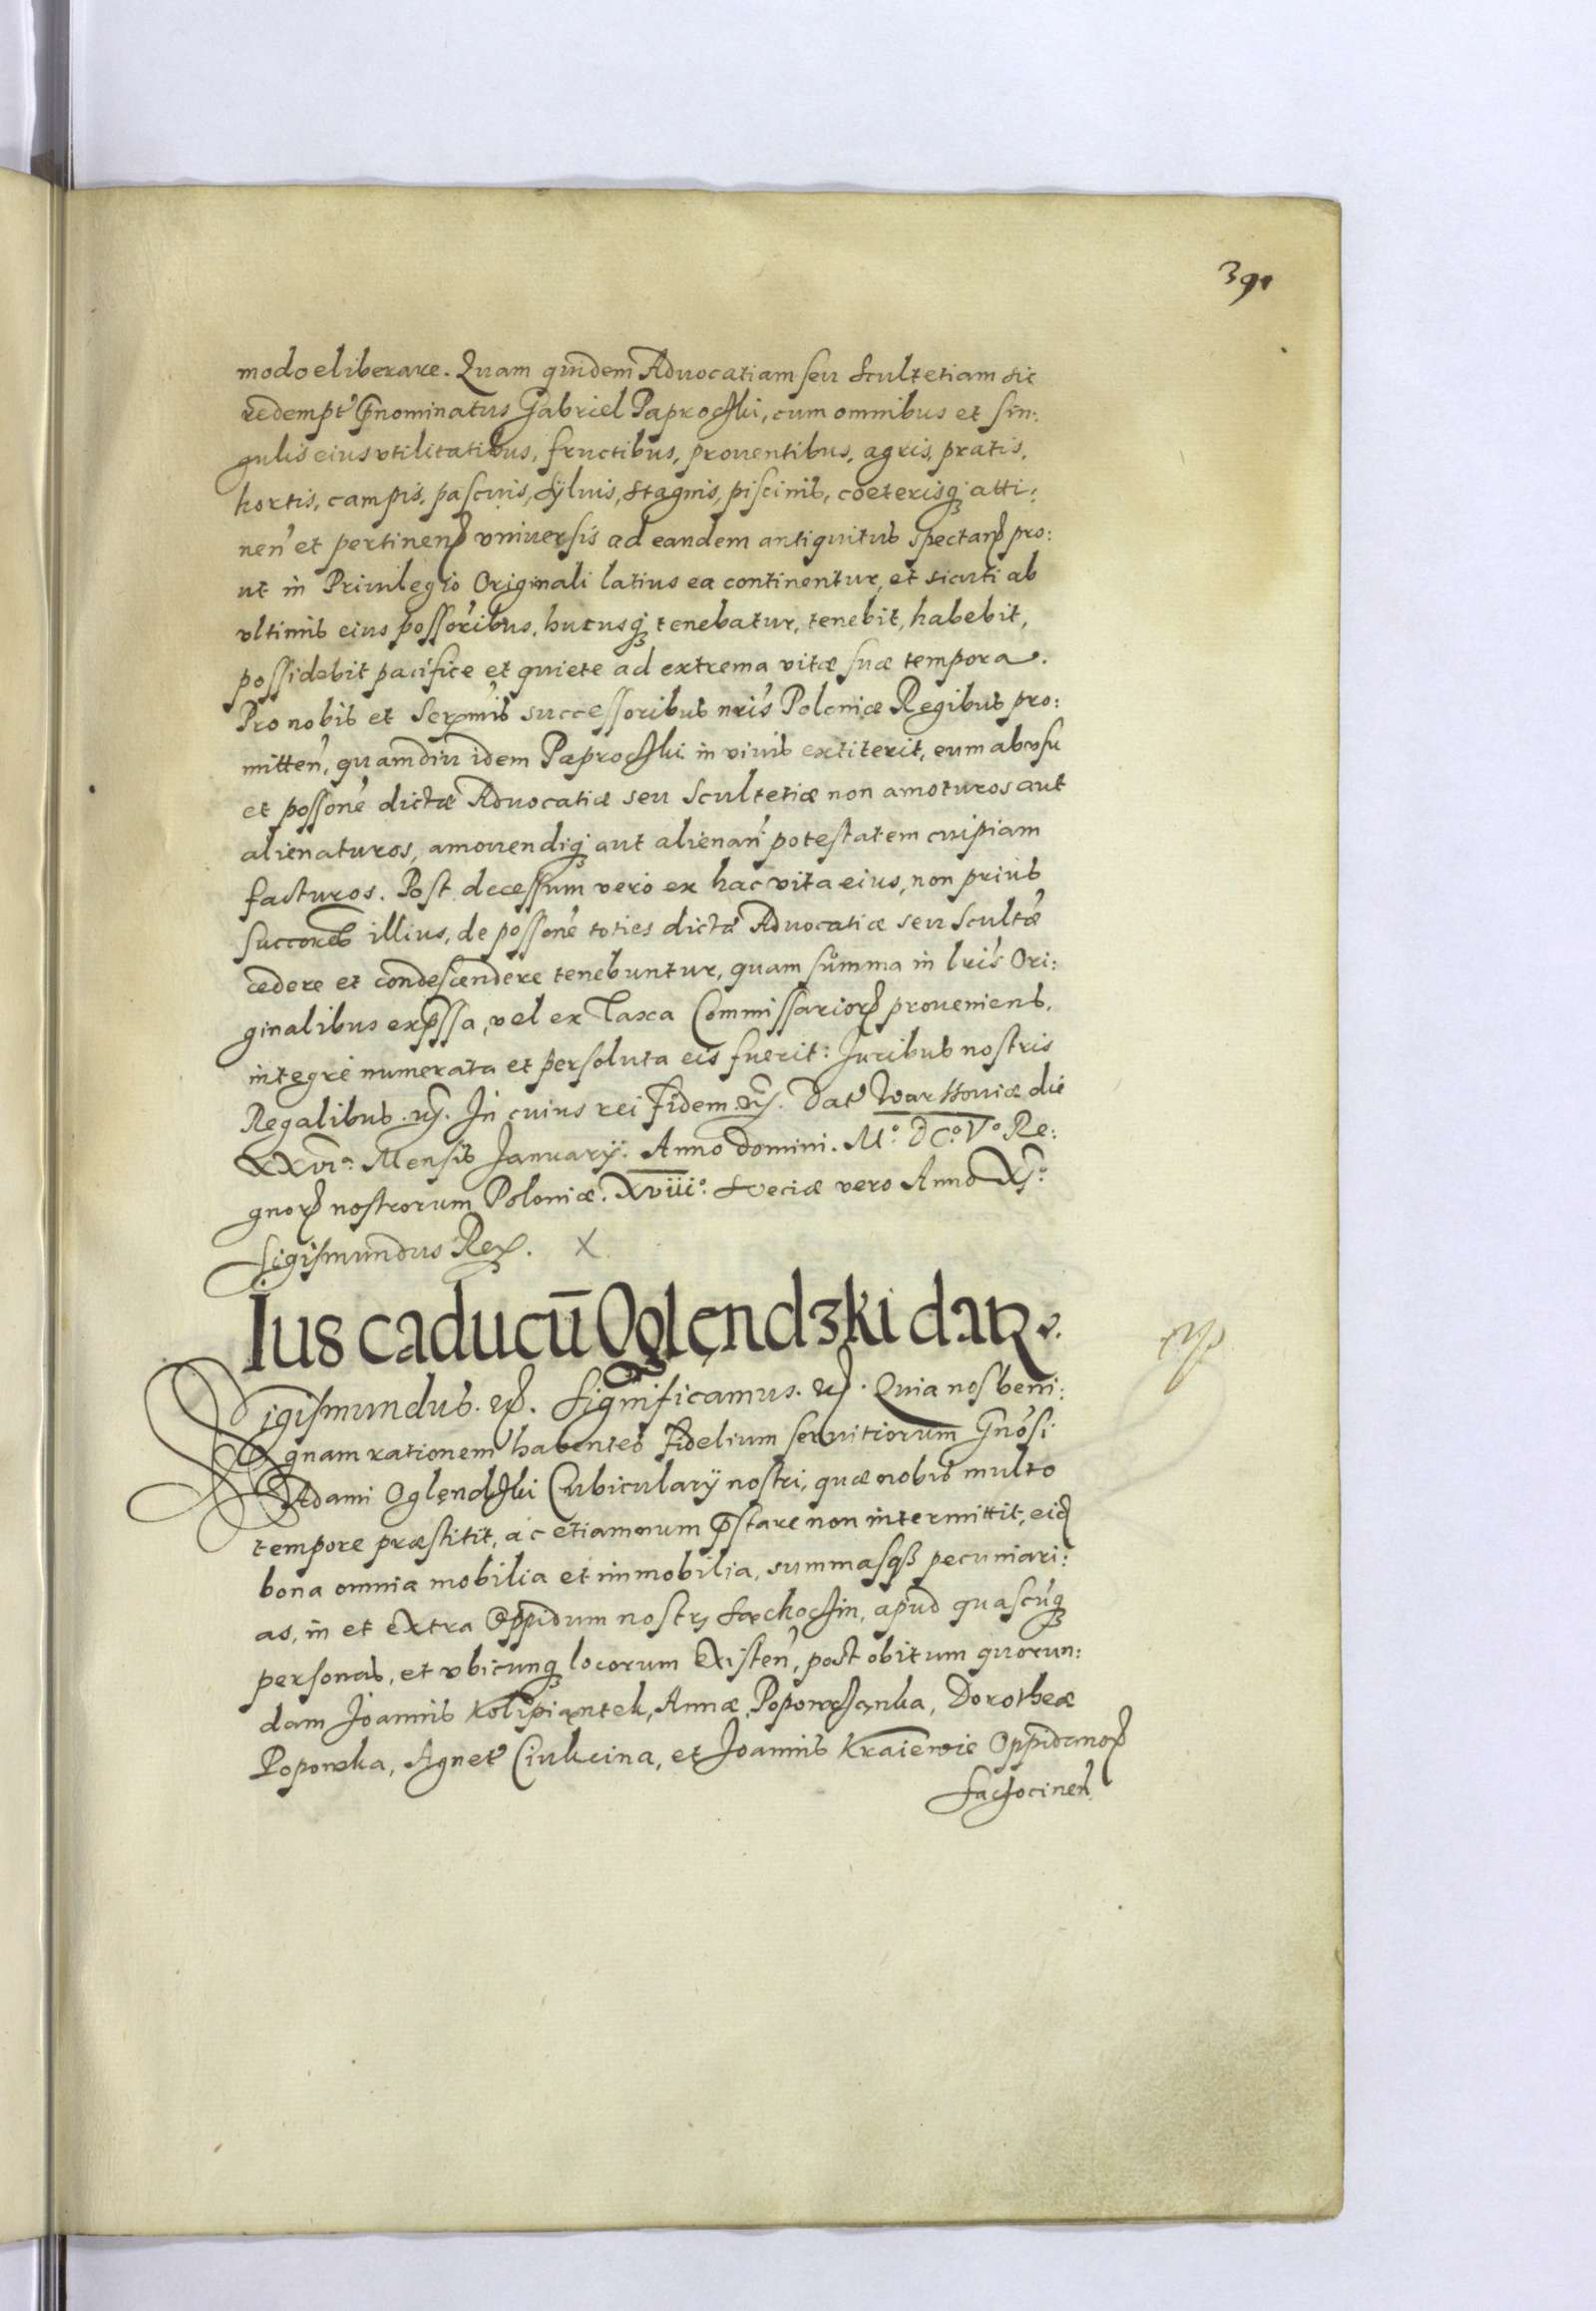 391
modo eliberare. Quam quidem Advocatiam seu Scultetiam sic
redempt' p̄nominatus Gabriel Paproczki, cum omnibus et sin:
gulis eius vtilitatibus, fructibus, prouentibus, agris, pratis,
hortis, campis, pascuis, sÿluis, stagnis, piscinis, coeterisq₃ atti:
nen' et pertinen̄ vniuersis ad eandem antiquitus spectan̄ pro:
ut in Priuilegio Originali latius ea continentur, et sicuti ab
vltimis eius possoribus, hucusq₃ tenebatur, tenebit, habebit,
possidebit pacifice et quiete ad extrema vitæ suæ tempora.
Pro nobis et Sermis successoribus nris Poloniæ Regibus pro:
mitten', quamdiu idem Paproczki in viuis extiterit, eum ab vsu
et possone dictæ Advocatiæ seu Scultetiæ non amoturos aut
alienaturos, amouendiq₃ aut alienan' potestatem cuipiam
facturos. Post decessum vero ex hac vita eius, non prius
succores illius, de possone toties dictæ Advocatiæ seu Scultæ
cedere et condescendere tenebuntur, quam summa in lris Ori:
ginalibus exp̄ssa, vel ex Taxa Commissarior̄ proueniens,
integre numerata et persoluta eis fuerit: Juribus nostris
Regalibus. etc. In cuius rei fidem. etc. Dat' Warssouiæ die
XXVIa. Mensis Januarÿ. Anno Domini. Mo. DCo. Vo. Re:
gnor̄ nostrorum Poloniæ. XVIIIo. Sveciæ vero Anno XIo.
Sigismundus Rex. X
Ius caducū Oglęndzki datr.
Sigismundus. etc. Significamus. etc. Quia nos beni:
gnam rationem habentes fidelium seruitiorum Gnosi
Adami Oglęndzki Cubicularÿ nostri, quæ nobis multo
tempore præstitit, ac etiamnum p̄stare non intermittit, eid
bona omnia mobilia et immobilia, summasq₃ pecuniari:
as, in et extra Oppidum nostr₃ Sochoczin, apud quascūq₃
personas, et vbicunq₃ locorum existen', post obitum quorun:
dam Joannis Kolipiąntek, Annæ Popowcząnka, Dorotheæ
Popowka, Agnet' Ciukcina, et Joannis Kraiewic Oppidanor̄
Sachocinen'